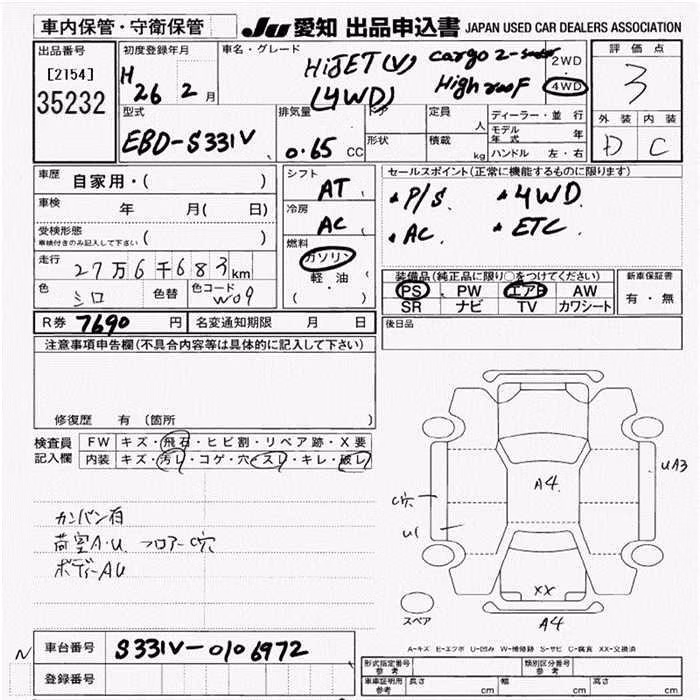 車内保管・守衛保管 JU 愛知 出品申込書 JAPAN USED CAR DEALERS ASSOCIATION
出品番号
[2154]
35232
初度登録年月
H 26 2 月
車名・グレード
HiJET (V) cargo 2-
(4WD) High roof
2WD
4WD
評価点
3
外装 内装
D C
型式
EBD-S331V
排気量
0.65 CC
ドア
定員 人
形状
積載 kg
ディーラー・並行
モデル年式 年
ハンドル 左・右
車歴 自家用・( )
車検 年 月( 日)
受検形態
車検付きのみ記入して下さい ( )
走行 27万6千683km
色 シロ 色替 色コード W09
シフト
AT
冷房
AC
燃料
ガソリン
軽・油
( )
セールスポイント(正常に機能するものに限ります)
・P/S. ・4WD
・AC. ・ETC.
装備品(純正品に限り○をつけてください)
PS PW エアB AW
SR ナビ TV カワシート
新車保証書
有・無
R券 7690 円 名変通知期限 月 日
後日品
注意事項申告欄(不具合内容等は具体的に記入して下さい)
修復歴 有 (箇所 )
検査員
記入欄
FW キズ・飛石・ヒビ割・リペア跡・X要
内装 キズ・汚レ・コゲ・穴・スレ・キレ・破レ
カンバン有
荷室A・U フロアーC穴
ボディーAU
A4
UA3
C穴
U1
XX
A4
スペア
A-キズ E-エクボ U-凹み W-補修跡 S-サビ C-腐食 XX-交換済
N
車台番号 S331V-0106972
登録番号
形式指定番号 参考
類別区分番号 参考
車庫証明用 参考 長さ cm 幅 cm 高さ cm